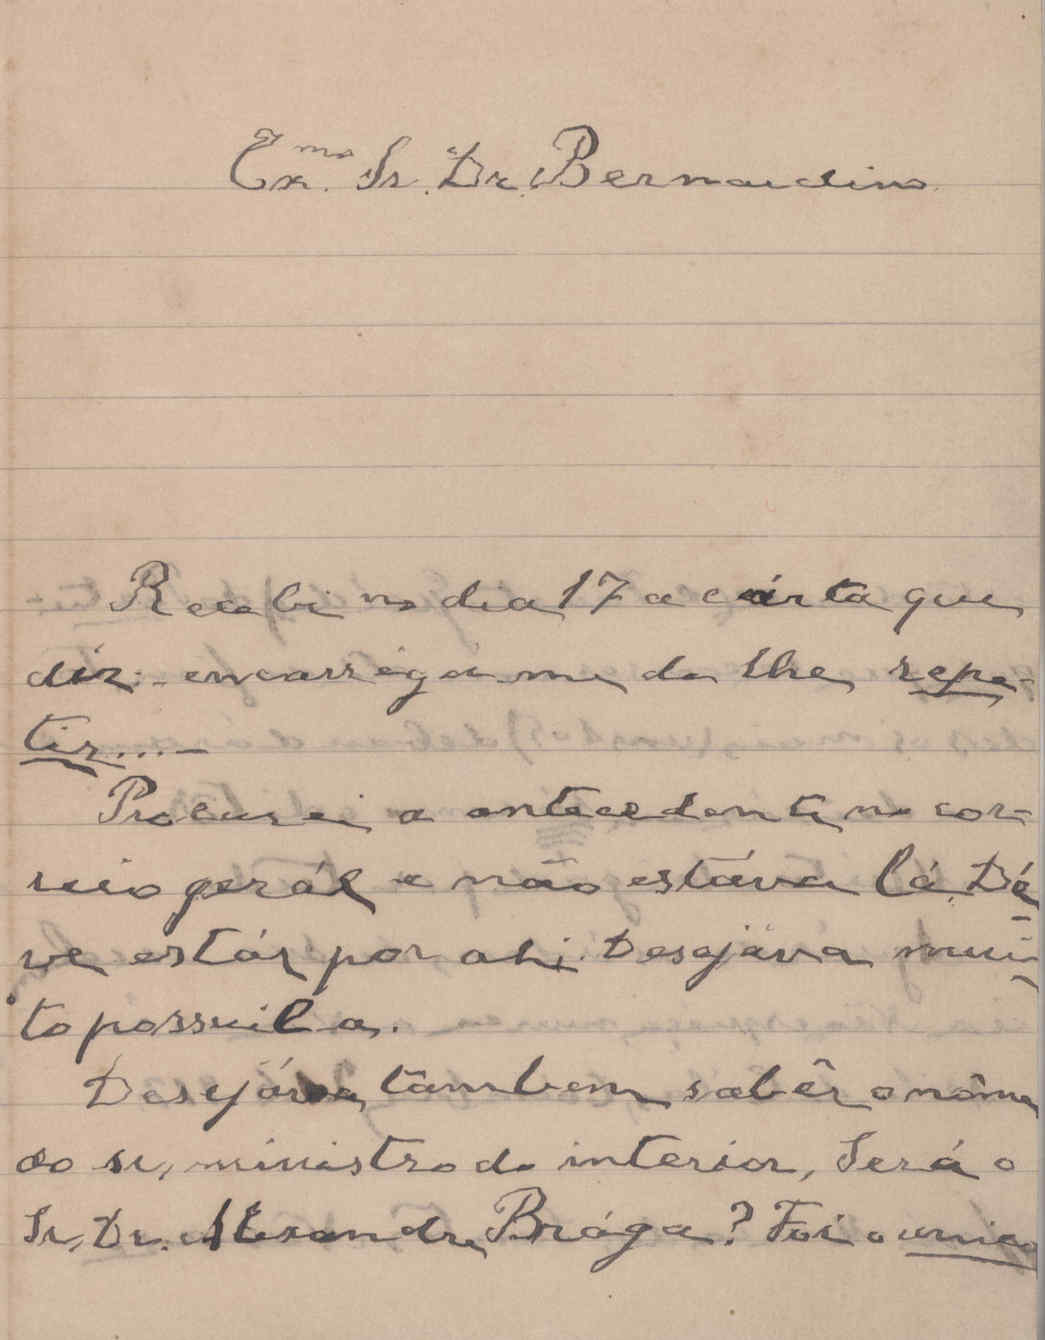 Exmo. Sr. Dr. Bernardino
Recebi no dia 17 a cárta que
diz: - encarréga-me de lhe repe-
tir...-
Procurei a antecedente no cor-
reio gerál e não estáva lá. Dé-
ve estár por ahi. Desejáva mui-
to possuil-a.
Desejáva tâmbem sabêr o nôme
do sr, ministro do interior, Será o
Sr, Dr. Alexandre Brága? Foi o unico